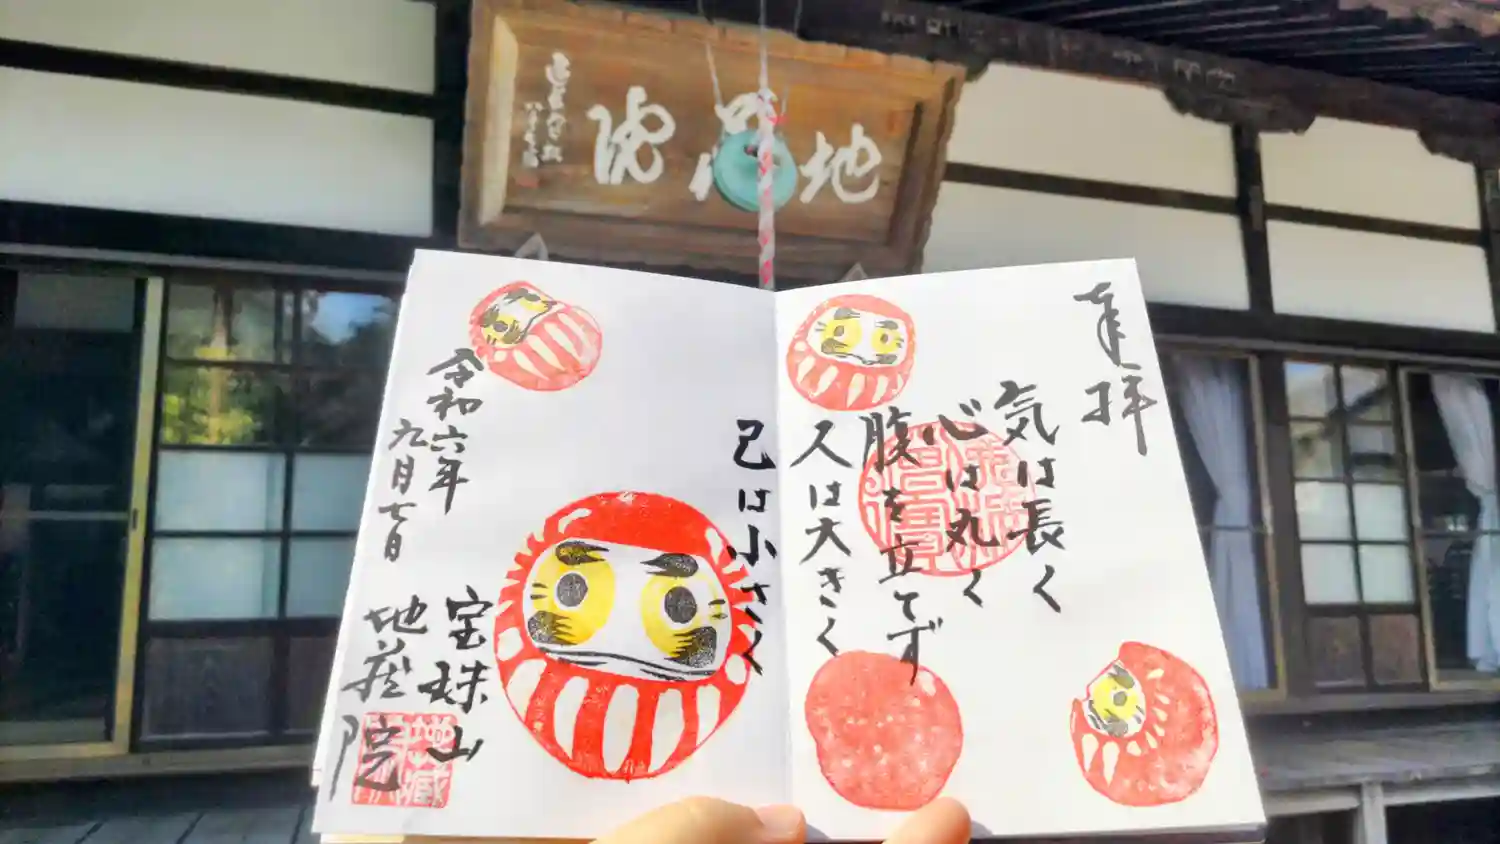 地蔵院
奉拝
気は長く
心は丸く
腹を立てず
人は大きく
己は小さく
令和六年
九月七日
宝珠山
地蔵院